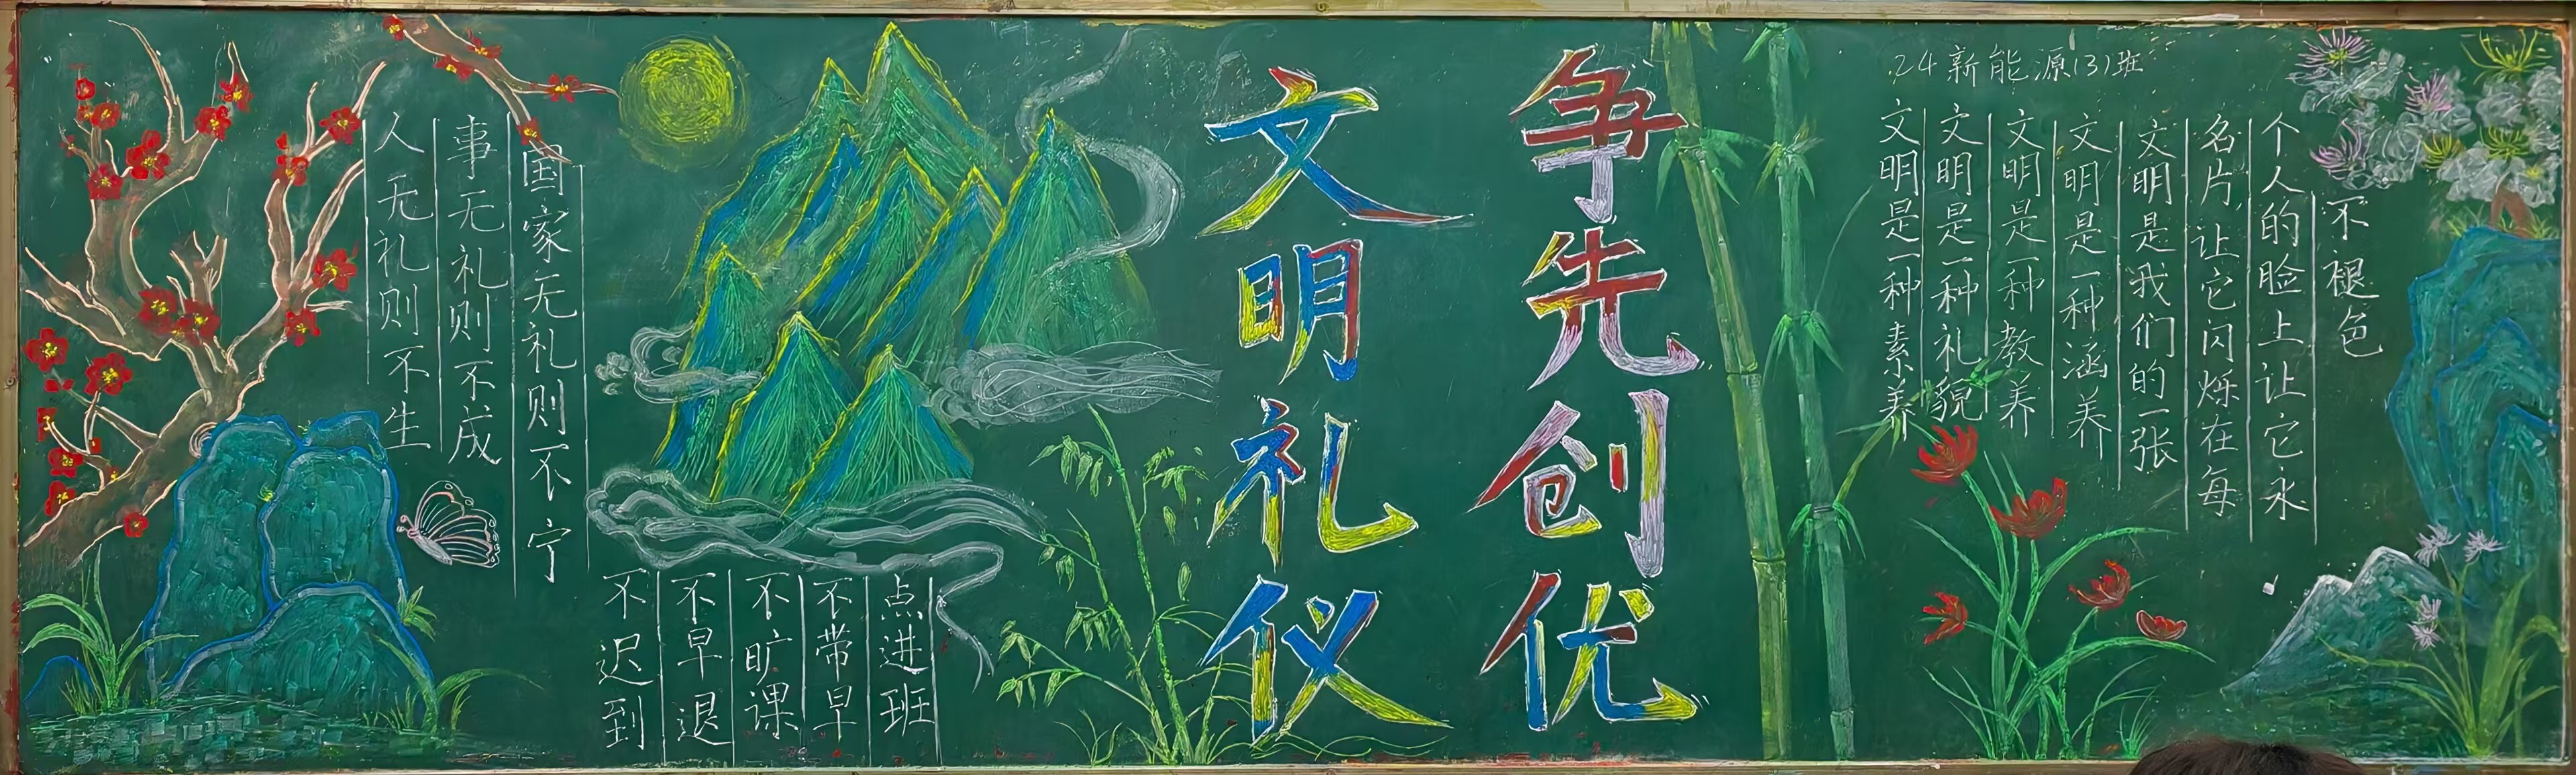 人无礼则不生
事无礼则不成
国家无礼则不宁
不迟到
不早退
不旷课
不带早
点进班
文明礼仪
争先创优
24新能源(3)班
文明是一种素养
文明是一种礼貌
文明是一种教养
文明是一种涵养
文明是我们的一张
名片,让它闪烁在每
个人的脸上让它永
不褪色